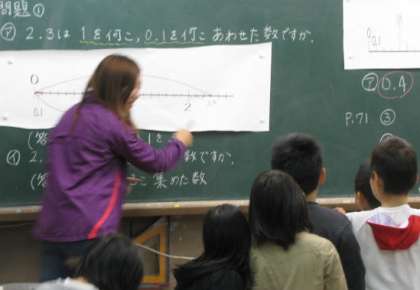 問題①
㋐ 2.3は 1を何こ, 0.1を何こ あわせた数ですか.
0
0.1
2
(答
1を
㋑ 2.
数ですか.
(答
こ 集めた数
0
0.1
㋐ 0.4
P.71 ③